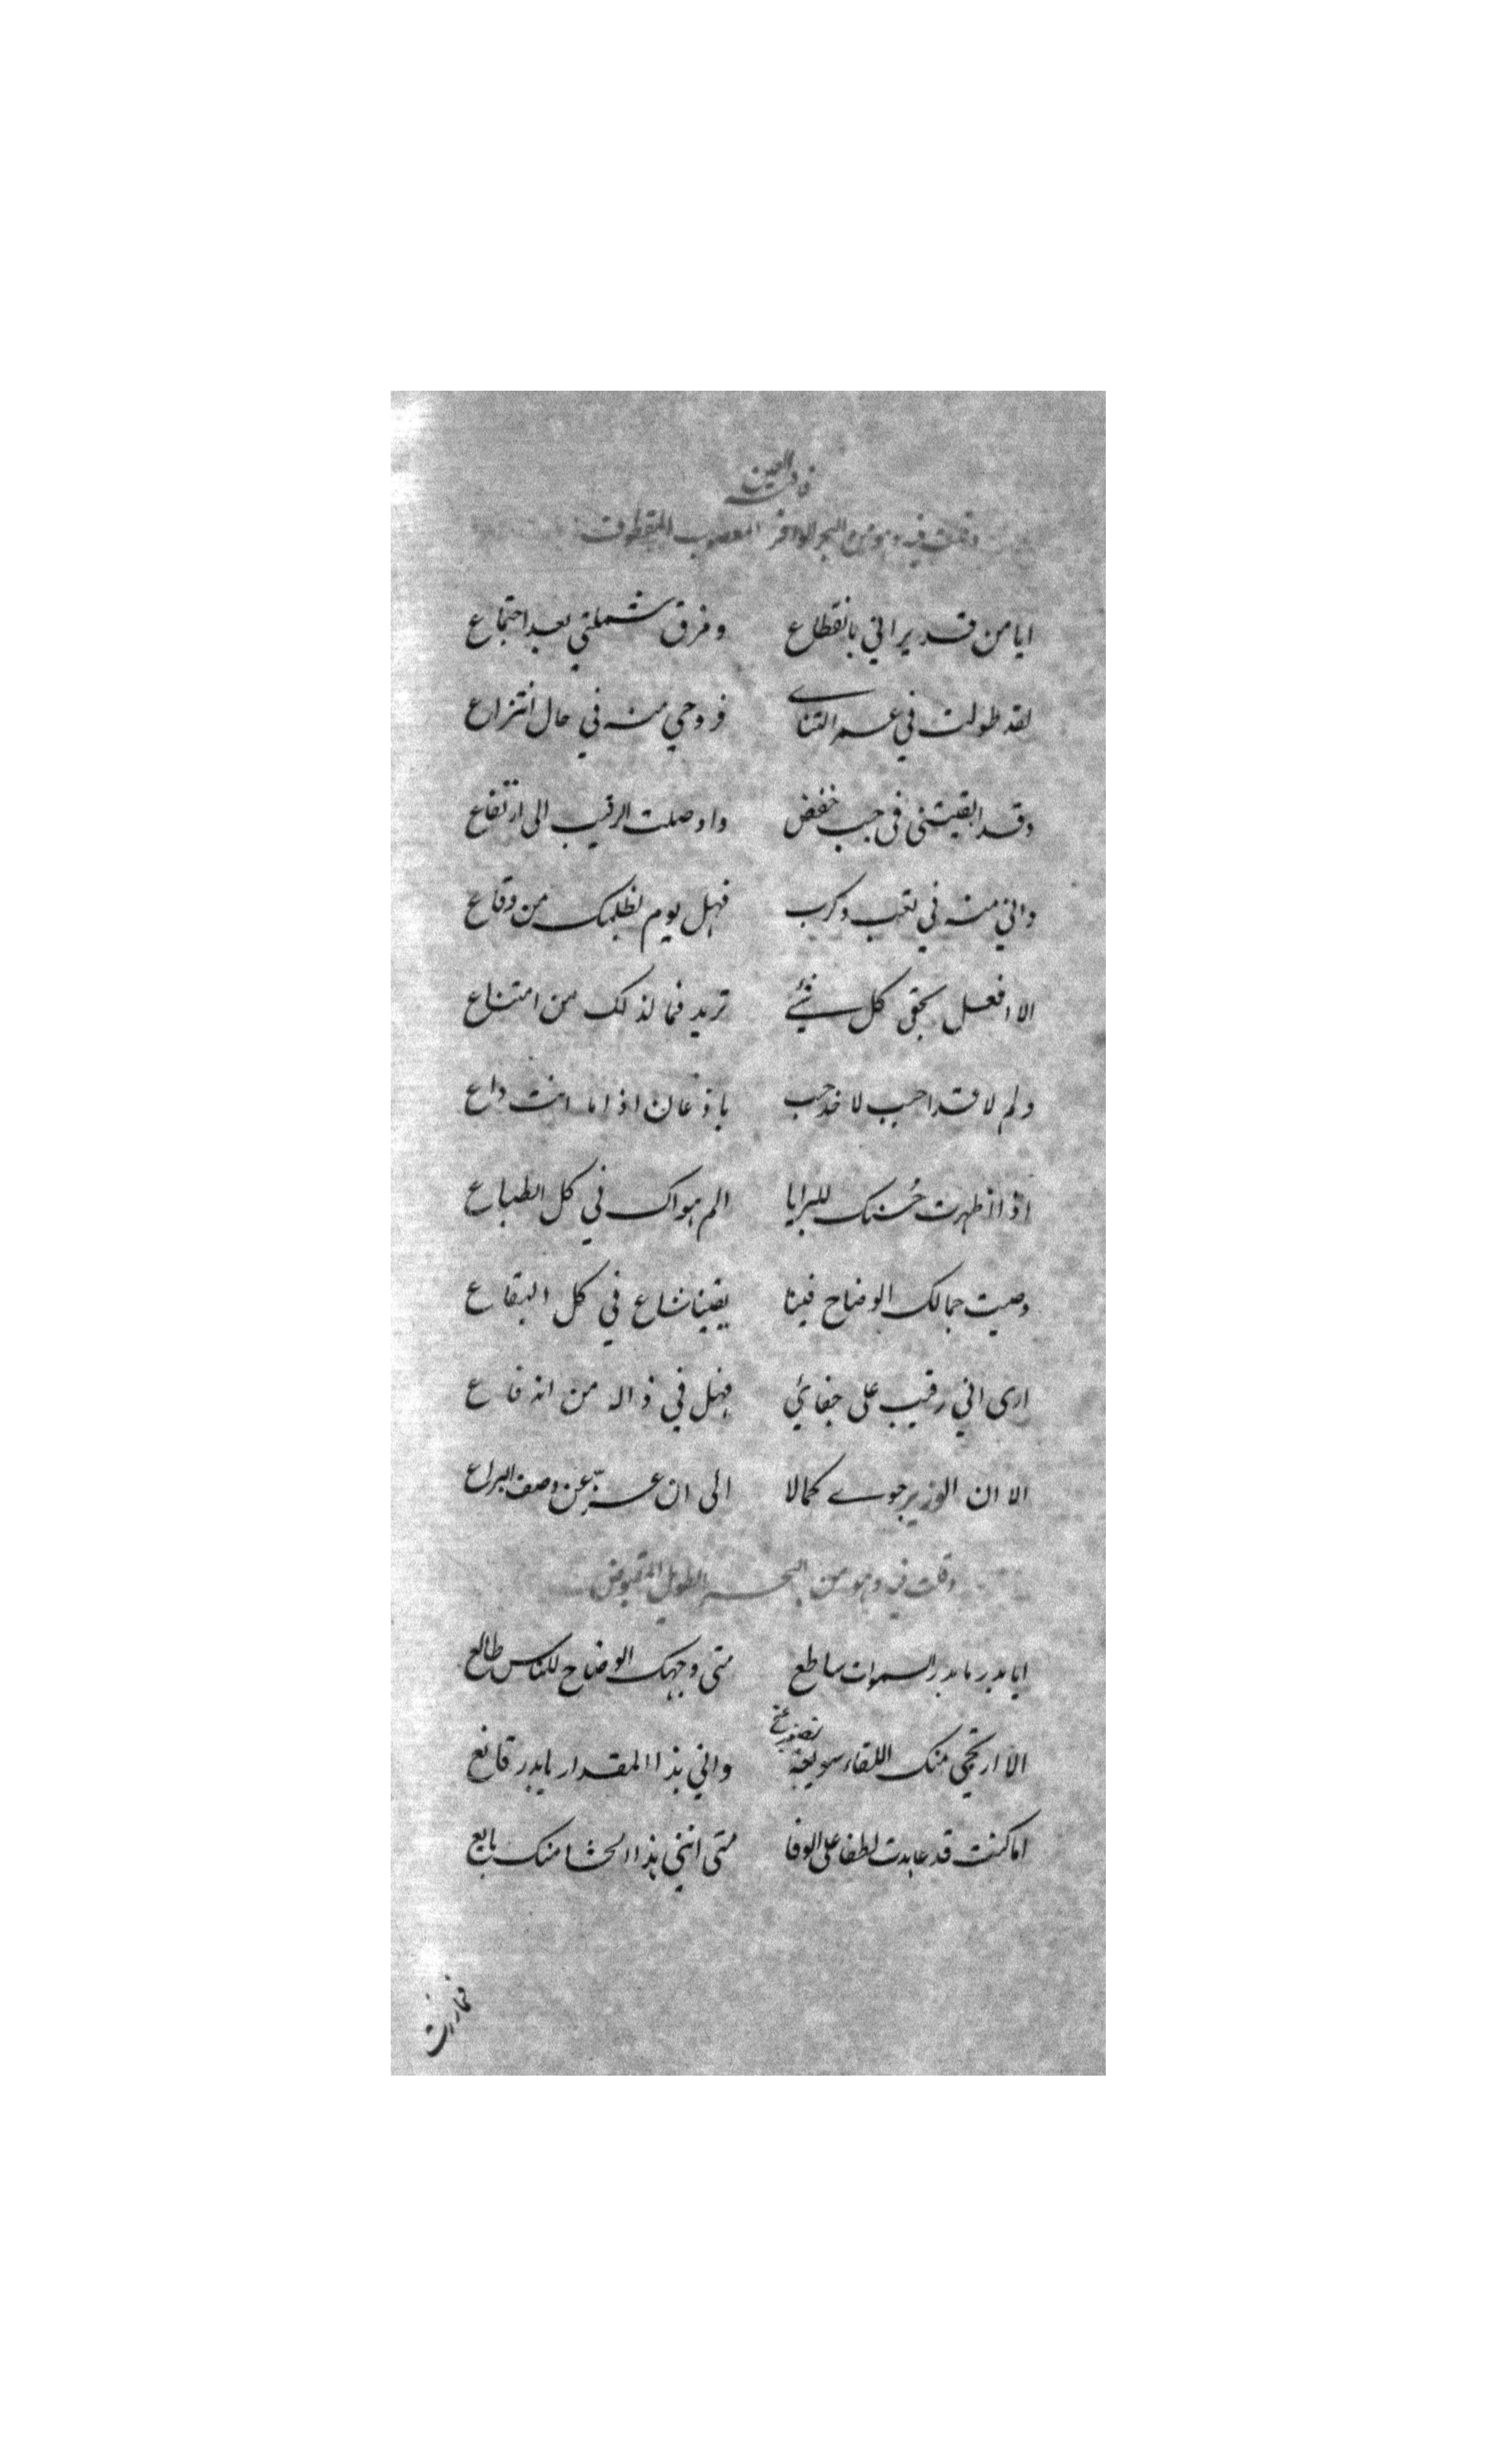 قافية العين
وقلت فيه وهو من البحر الوافر المعصوب المقطوف
ايا من قد براني بانقطاع وفرق شملتي بعد اجتماع
لقد طولت في عمر التنائے فروحي منه في حال انتزاع
وقد ابقيتني في جب خفض واوصلت الرقيب الى ارتفاع
واني منه في تعب وكرب فهل يوم لظلمك من وقاع
الا افعل بحقى كل شيئے تريد فما لذلك من امتناع
ولم لا قد احب لا خدحب باذعان اذا ما انت داع
اذا اظهرت حُسنك للبرايا الم هواك في كل الطباع
وصيت جمالك الوضاح فينا يقينا شاع في كل البقاع
ارى اني رقيب على جفائي فهل في ذاله من اندفاع
الا ان الوزير حوے كمالا الى ان عزّ عن وصف اليراع
وقلت فيه وهو من البحر الطويل المقبوض
ايا بدر ما بدر السموات ساطع متى وجهك الوضاح للناس طالع
الا ارتجي منك اللقاء سويعة واني بهذا المقدار يا بدر قانع
اما كنت قد عاهدت لطفا على الوفا متى انني هذا الحشا منك بايع